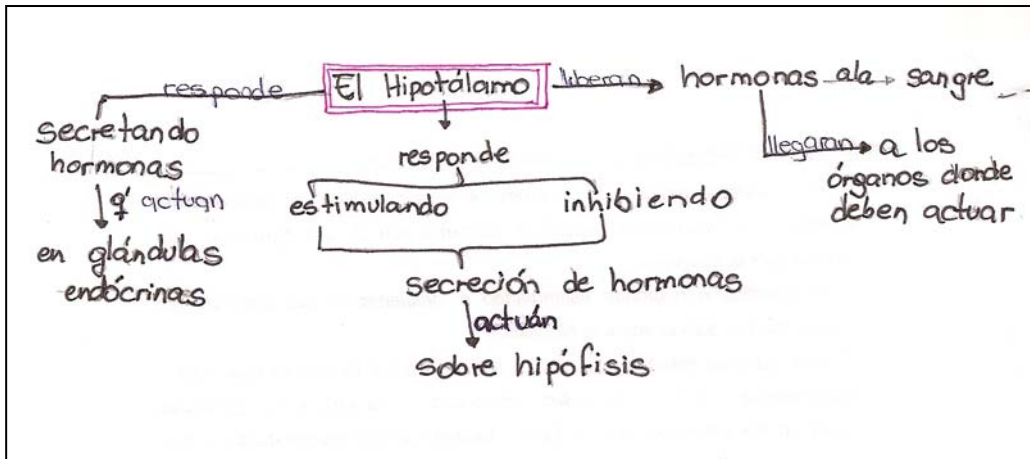 El Hipotálamo
responde
secretando
hormonas
q' actuan
en glándulas
endócrinas
responde
estimulando inhibiendo
secreción de hormonas
actuán
sobre hipófisis
liberan
hormonas ala sangre
llegaran a los
órganos donde
deben actuar.